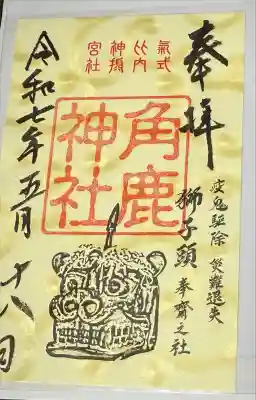 奉拝
疫鬼駆除 災難退失
獅子頭 奉齋之社
式内摂社
氣比神宮
角鹿
神社
令和七年五月十八日